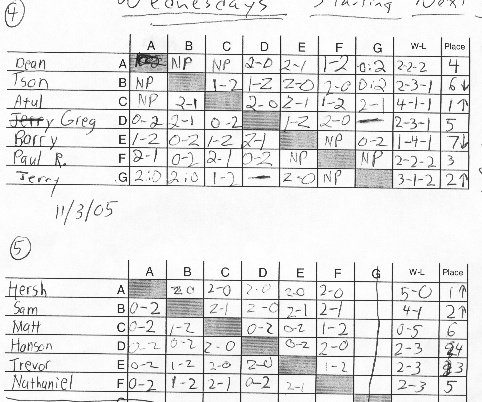 ④ Wednesdays Starting Next
A B C D E F G W-L Place
Dean A NP NP 2-0 2-1 1-2 0:2 2-2-2 4
Tson B NP 1-2 1-2 2-0 2-0 0:2 2-3-1 6↓
Atul C NP 2-1 2-0 2-1 1-2 2-1 4-1-1 1↑
Greg D 0-2 2-1 0-2 1-2 2-0 — 2-3-1 5
Rorry E 1-2 0-2 1-2 2-1 NP 0-2 1-4-1 7↓
Paul R. F 2-1 0-2 2-1 0-2 NP NP 2-2-2 3
Jerry G 2:0 2:0 1-2 — 2-0 NP 3-1-2 2↑
11/3/05
⑤
A B C D E F G W-L Place
Hersh A 2-0 2-0 2-0 2-0 2-0 5-0 1↑
Sam B 0-2 2-1 2-0 2-1 2-1 4-1 2↑
Matt C 0-2 1-2 0-2 0-2 1-2 0-5 6
Hanson D 0-2 0-2 2-0 0-2 2-0 2-3 4
Trevor E 0-2 1-2 2-0 2-0 1-2 2-3 3
Nathaniel F 0-2 1-2 2-1 0-2 2-1 2-3 5